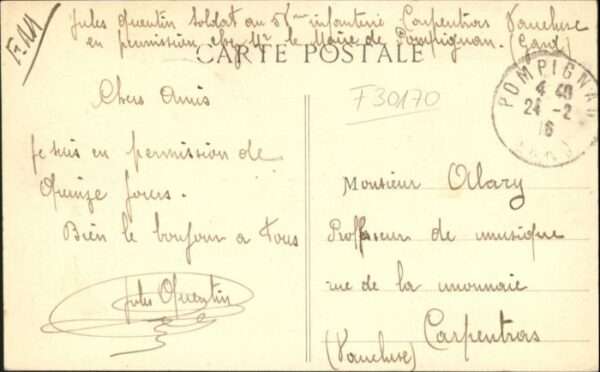 Jules Quentin soldat au 58me infanterie Carpentras Vaucluse
en permission chez Mr le Maire de Pompignan. (Gard)
F. 111
CARTE POSTALE
Chers Amis
F30170
POMPIGNAN
4 40
24 -2
16
GARD
je suis en permission de
Quinze jours.
Bien le bonjour a Tous
Jules Quentin
Monsieur Alary
Professeur de musique
rue de la monnaie
Carpentras
(Vaucluse)